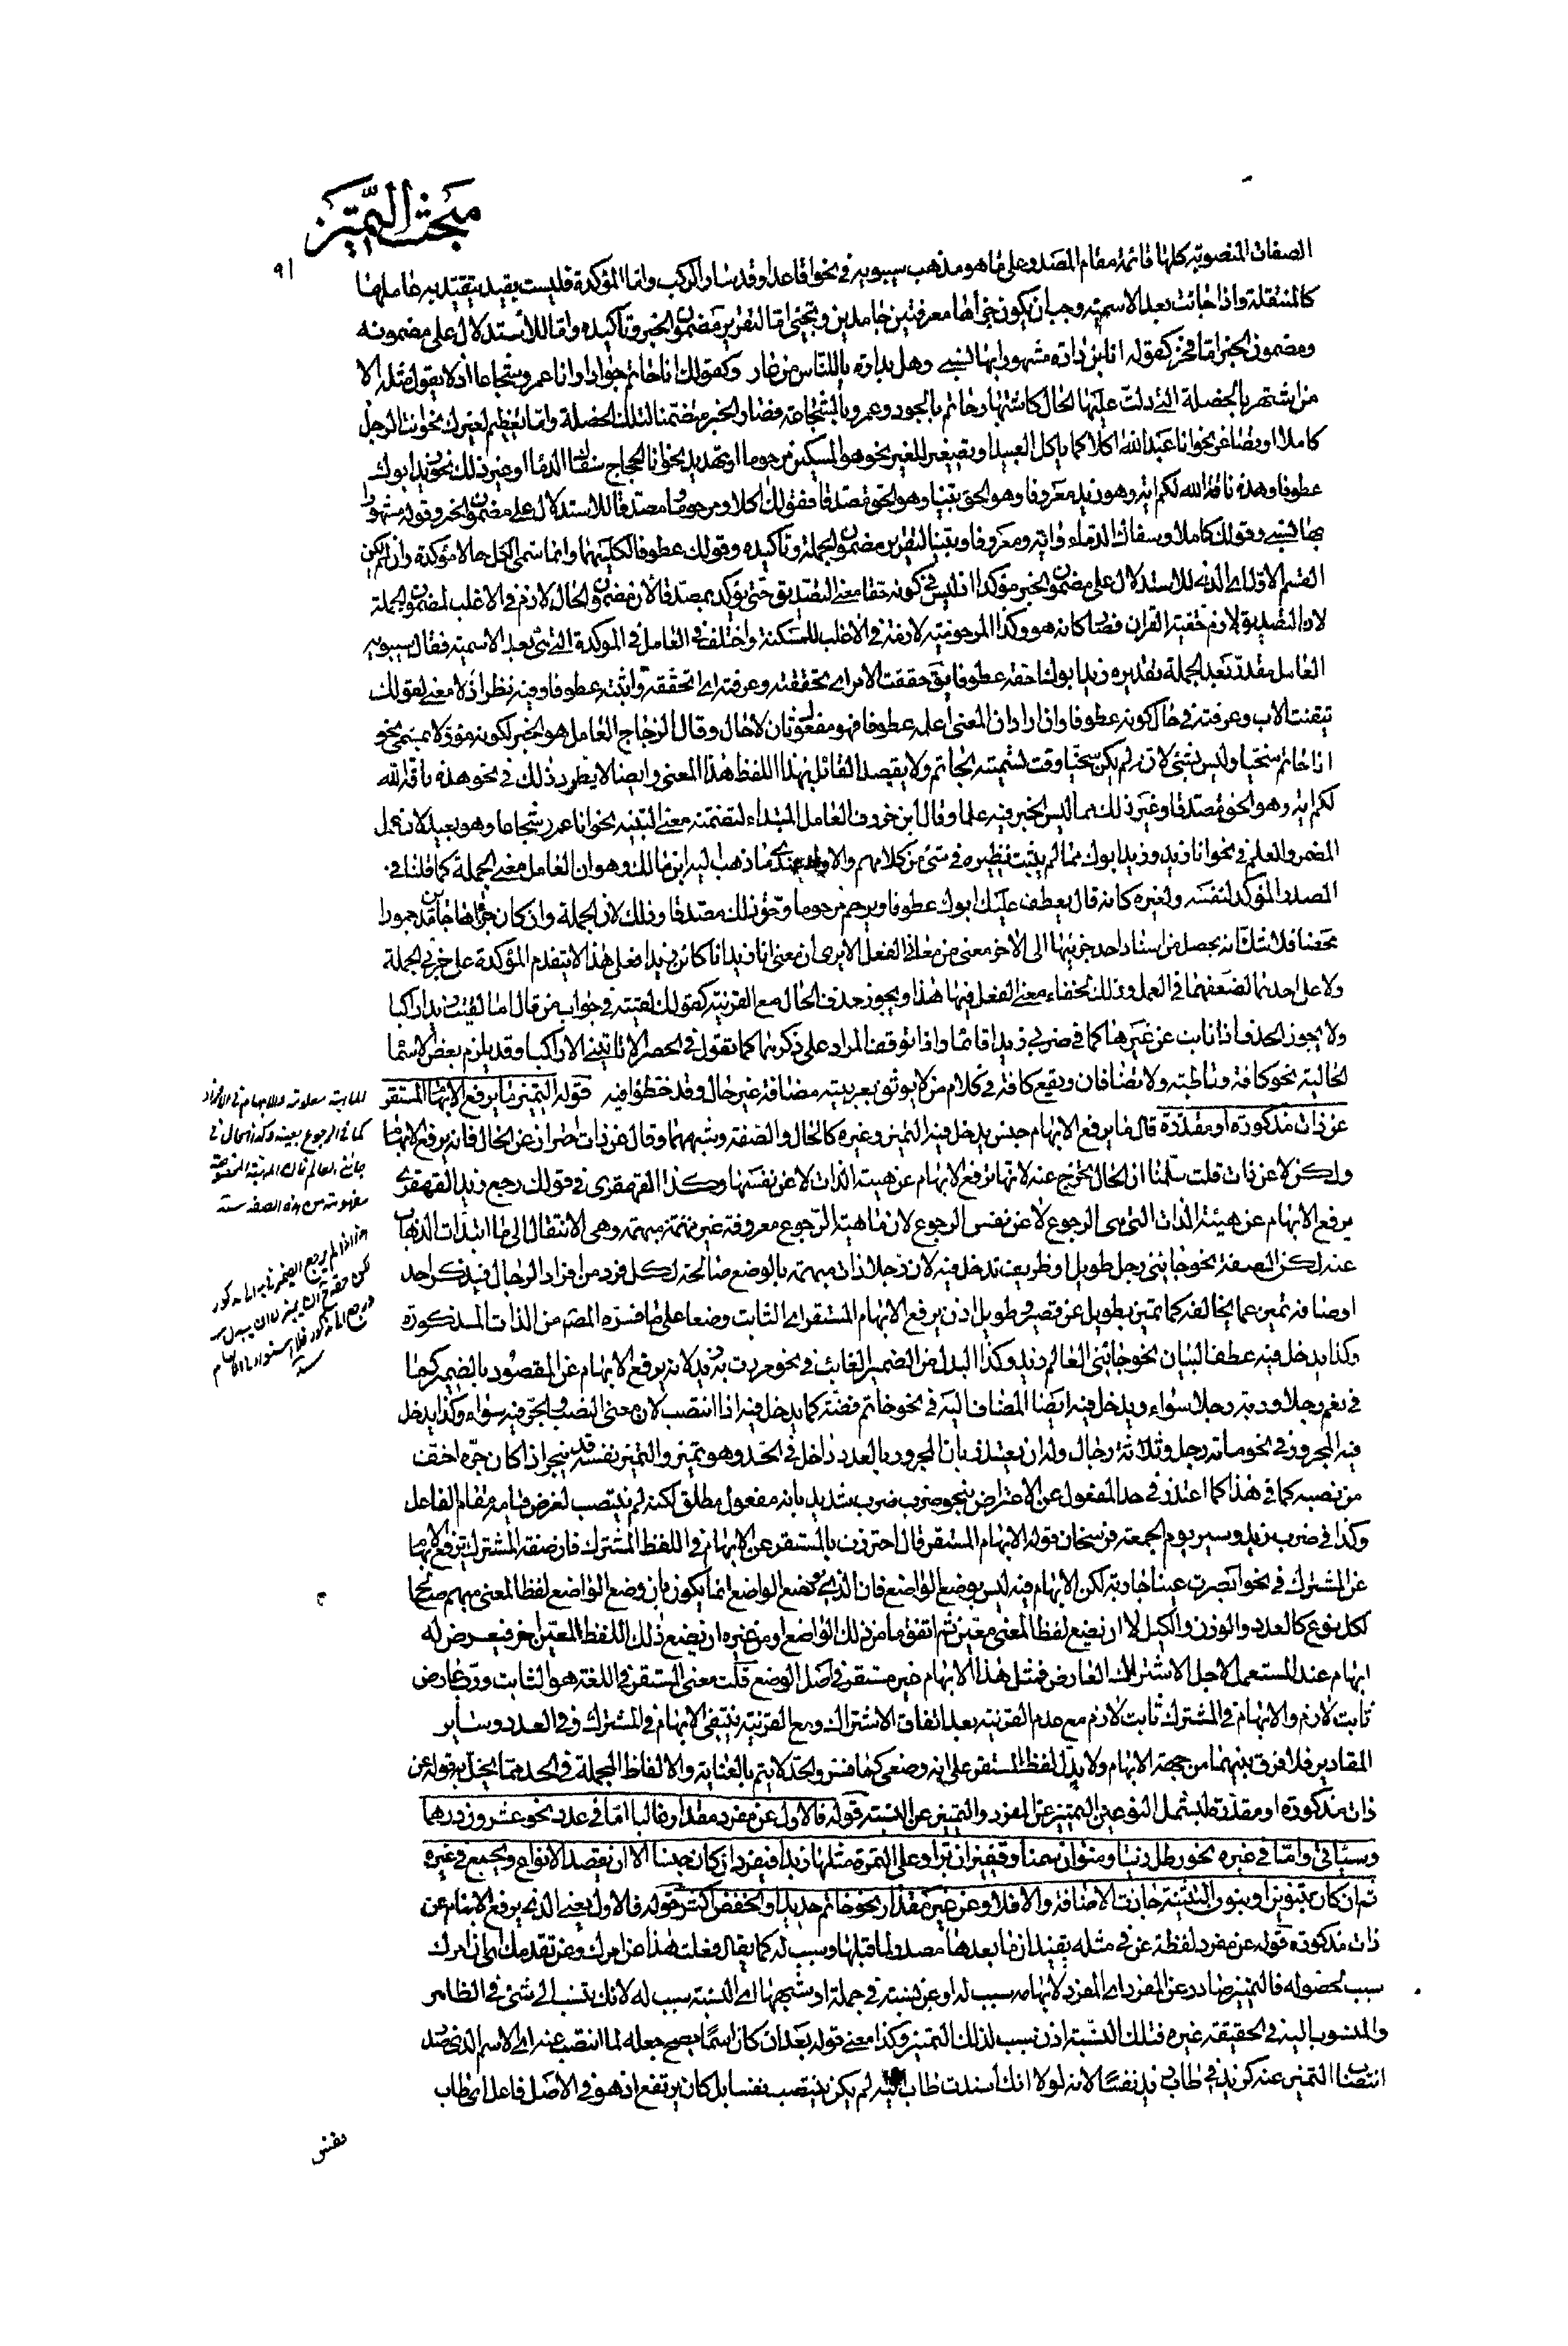 مبحث التميز
٩١
الصفات المنصوبة كلها قائمة مقام المصدر على ما هو مذهب سيبويه في نحو اقاعدا وقد سار الركب واما المؤكدة فليست بقيد يتقيد به عاملها
كالمنتقلة واذا جائت بعد الاسمية وجب ان يكون جزأها معرفتين جامدين ويجئ اما لتقرير مضمون الخبر وتأكيده واما للاستدلال على مضمونه
ومضمون الخبر اما فخر كقوله انا ابن دارة مشهورا بها نسبي وهل بدارة يا للناس من عار وكقولك انا حاتم جوادا وانا عمرو شجاعا اذ لا يقول مثله الا
من اشتهر بالخصلة التي دلت عليها الحال كاشتهار حاتم بالجود وعمرو بالشجاعة فصار الخبر متضمنا لتلك الخصلة واما تعظيم لغيرك نحو انت الرجل
كاملا او تصاغر نحو انا عبد الله اكلا كما ياكل العبيد او تصغير للغير نحو هو المسكين مرحوما او تهديد نحو انا الحجاج سفاك الدماء او غير ذلك نحو زيد ابوك
عطوفا وهذه ناقة الله لكم اية وهو زيد معروفا وهو الحق بينا وهو الحق مصدقا فقولك اكلا ومرحوما ومصدقا للاستدلال على مضمون الخبر وقوله مشهورا
بها نسبي وقولك كاملا وسفاك الدماء واية ومعروفا وبينا لتقرير مضمون الجملة وتأكيده وقولك عطوفا لكليهما وانما سمى الكل حالا مؤكدة وان لم يكن
القسم الاول اي الذي للاستدلال على مضمون الخبر مؤكدا اذ ليس في كونه حقا معنى التصديق حتى يؤكد بمصدقا لان مضمون الحال لازم في الاغلب لمضمون الجملة
لان التصديق لازم حقية القران فصار كانه هو وكذا المرحومية لازمة في الاغلب للمسكنة واختلف في العامل في المؤكدة التي بعد الاسمية فقال سيبويه
العامل مقدر بعد الجملة تقديره زيد ابوك احقه عطوفا يق حققت الامر اي تحققته وعرفته اي اتحققه واثبته عطوفا وفيه نظر اذ لا معنى لقولك
تيقنت الاب وعرفته في حال كونه عطوفا وان اراد ان المعنى اعلمه عطوفا فهو مفعول ثان لا حال وقال الزجاج العامل هو الخبر لكونه مؤولا بمسمى نحو
انا حاتم سخيا وليس بشئ لانه لم يكن سخيا وقت تسميته بحاتم ولا يقصد القائل بهذا اللفظ هذا المعنى وايضا لا يطرد ذلك في نحو هذه ناقة الله
لكم اية وهو الحق مصدقا وغير ذلك مما ليس الخبر فيه علما وقال ابن خروف العامل المبتداء لتضمنه معنى التنبيه نحو انا عمرو شجاعا وهو بعيد لان عمل
المضمر والعلم في نحو انا زيد وزيد ابوك مما لم يثبت نظيره في شئ من كلامهم والاولى عندي ما ذهب اليه ابن مالك وهو ان العامل معنى الجملة كما قلنا في
المصدر المؤكد لنفسه ولغيره كانه قال يعطف عليك ابوك عطوفا ويرحم مرحوما وحق ذلك مصدقا وذلك لان الجملة وان كان جزأها جامدين جمودا
محضا فلا شك انه يحصل من اسناد احد جزئيها الى الاخر معنى من معاني الفعل الا يرى ان معنى انا زيد انا كائن زيدا فعلى هذا لا يتقدم المؤكدة على جزئي الجملة
ولا على احدهما لضعفهما في العمل وذلك لخفاء معنى الفعل فيها هذا ويجوز حذف الحال مع القرينة كقولك لقيته في جواب من قال اما لقيت زيدا راكبا
ولا يجوز الحذف اذا نابت عن غيرها كما في ضربي زيدا قائما واذا توقف المراد على ذكرها كما تقول في الحصر لا تاتيني الا راكبا وقد يلزم بعض الاسماء
الحالية نحو كافة وقاطبة ولا تضافان ويقع كافة في كلام من لا يوثق بعربيته مضافة غير حال وقد خطؤا فيه قوله التميز ما يرفع الابهام المستقر
عن ذات مذكورة او مقدرة قال ما يرفع الابهام جنس يدخل فيه التميز وغيره كالحال والصفة وشبههما وقال عن ذات احتراز عن الحال فانه يرفع الابهام
ولكن لا عن ذات قلت سلمنا ان الحال تخرج عنه لانها ترفع الابهام عن هيئة الذات لا عن نفسها وكذا القهقرى في قولك رجع زيد القهقرى
يرفع الابهام عن هيئة الذات التي هي الرجوع لا عن نفس الرجوع لان ماهية الرجوع معروفة غير مبهمة وهي الانتقال الى ما ابتدأت الذهاب
عنه لكن الصفة نحو جائني رجل طويل او ظريف تدخل فيه لان رجلا ذات مبهمة بالوضع صالحة لكل فرد من افراد الرجال فبذكر احد
اوصافه تميز عما يخالفه كما تميز بطويل عن قصير فطويل اذن يرفع الابهام المستقر اي الثابت وضعا على ما فسره المصنف من الذات المذكورة
وكذا يدخل فيه عطف البيان نحو جائني العالم زيد وكذا البدل من الضمير الغائب في نحو مررت به زيد لانه يرفع الابهام عن المقصود بالضمير كما
في نعم رجلا وربه رجلا سواء ويدخل فيه ايضا المضاف اليه في نحو خاتم فضة كما يدخل فيه اذا انتصب لان معنى النصب والجر فيه سواء وكذا يدخل
فيه المجرور في نحو مائة رجل وثلاثة رجال وله ان يعتذر بان المجرور بالعدد داخل في الحد وهو تميز والتميز نفسه قد ينجر اذا كان جره اخف
من نصبه كما في هذا كما اعتذر في حد المفعول عن الاعتراض بنحو ضرب ضرب شديد بانه مفعول مطلق لكنه لم ينتصب لغرض قيامه مقام الفاعل
وكذا في ضرب زيد وسير يوم الجمعة فرسخان قوله الابهام المستقر قال احترزت بالمستقر عن الابهام في اللفظ المشترك فان صفة المشترك ترفع الابهام
عن المشترك في نحو ابصرت عينا جارية لكن الابهام فيه ليس بوضع الواضع فان الذي بوضع الواضع انما يكون بان وضع الواضع لفظا لمعنى مبهم صالحا
لكل نوع كالعدد والوزن والكيل لا ان يضع لفظا لمعنى معين ثم اتفق اما من ذلك الواضع او من غيره ان يضع ذلك اللفظ لمعين اخر فيعرض له
ابهام عند المستعمل لاجل الاشتراك العارض فمثل هذا الابهام غير مستقر في اصل الوضع قلت معنى المستقر في اللغة هو الثابت ورب عارض
ثابت لازم والابهام في المشترك ثابت لازم مع عدم القرينة بعد اتفاق الاشتراك ومع القرينة ينتفي الابهام في المشترك وفي العدد وساير
المقادير فلا فرق بينهما من جهة الابهام ولا يدل لفظ المستقر على انه وضعي كما فسر والحد لا يتم بالعناية والالفاظ المجملة في الحد مما يخل به قوله عن
ذات مذكورة او مقدرة ليشمل النوعين التميز عن المفرد والتميز عن النسبة قوله فالاول عن مفرد مقدار غالبا اما في عدد نحو عشرون درهما
وسياتي واما في غيره نحو رطل زيتا ومنوان سمنا وقفيزان برا وعلى التمرة مثلها زبدا فيفرد ان كان جنسا الا ان يقصد الانواع ويجمع في غيره
ثم ان كان بتنوين او بنون التثنية جازت الاضافة والا فلا وعن غير مقدار نحو خاتم حديدا والخفض اكثر قوله فالاول يعني الذي يرفع الابهام عن
ذات مذكورة قوله عن مفرد لفظة عن في مثله يفيد ان ما بعدها مصدر لما قبلها وسبب له كما يقال فعلت هذا عن امرك وعن تقدمك اي ان امرك
سبب لحصوله فالتميز صادر عن المفرد اي المفرد لابهامه سبب له او عن نسبة في جملة او شبهها اي النسبة سبب له لانك تنسب الى شئ في الظاهر
والمنسوب اليه في الحقيقة غيره فتلك النسبة اذن سبب لذلك التميز وكذا معنى قوله بعد ان كان اسما يصح جعله لما انتصب عنه اي الاسم الذي صدر
انتصاب التميز عنه كزيد في طاب زيد نفسا لانه لولا انك اسندت طاب اليه لم يكن ينتصب نفسا بل كان يرتفع اذ هو في الاصل فاعل اي طاب
نفس